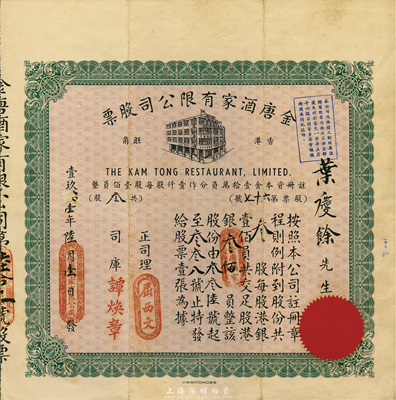 金唐酒家有限公司股票
香港　旺角
THE KAM TONG RESTAURANT, LIMITED.
註冊資本金壹拾萬員分作壹仟股每股壹佰員整
股票第七十六號　共叁股
葉慶餘先生
按照本公司註冊章
程則例附到股份共
叁股每股港銀
壹佰員共交足股港
銀叁佰員整該
股份由叁叁陸號起
至叁叁八號止特發
給股票壹張為據
正司理
屈西文
司庫
譚煥章
月壹日發
金唐酒家有限公司第
號股票